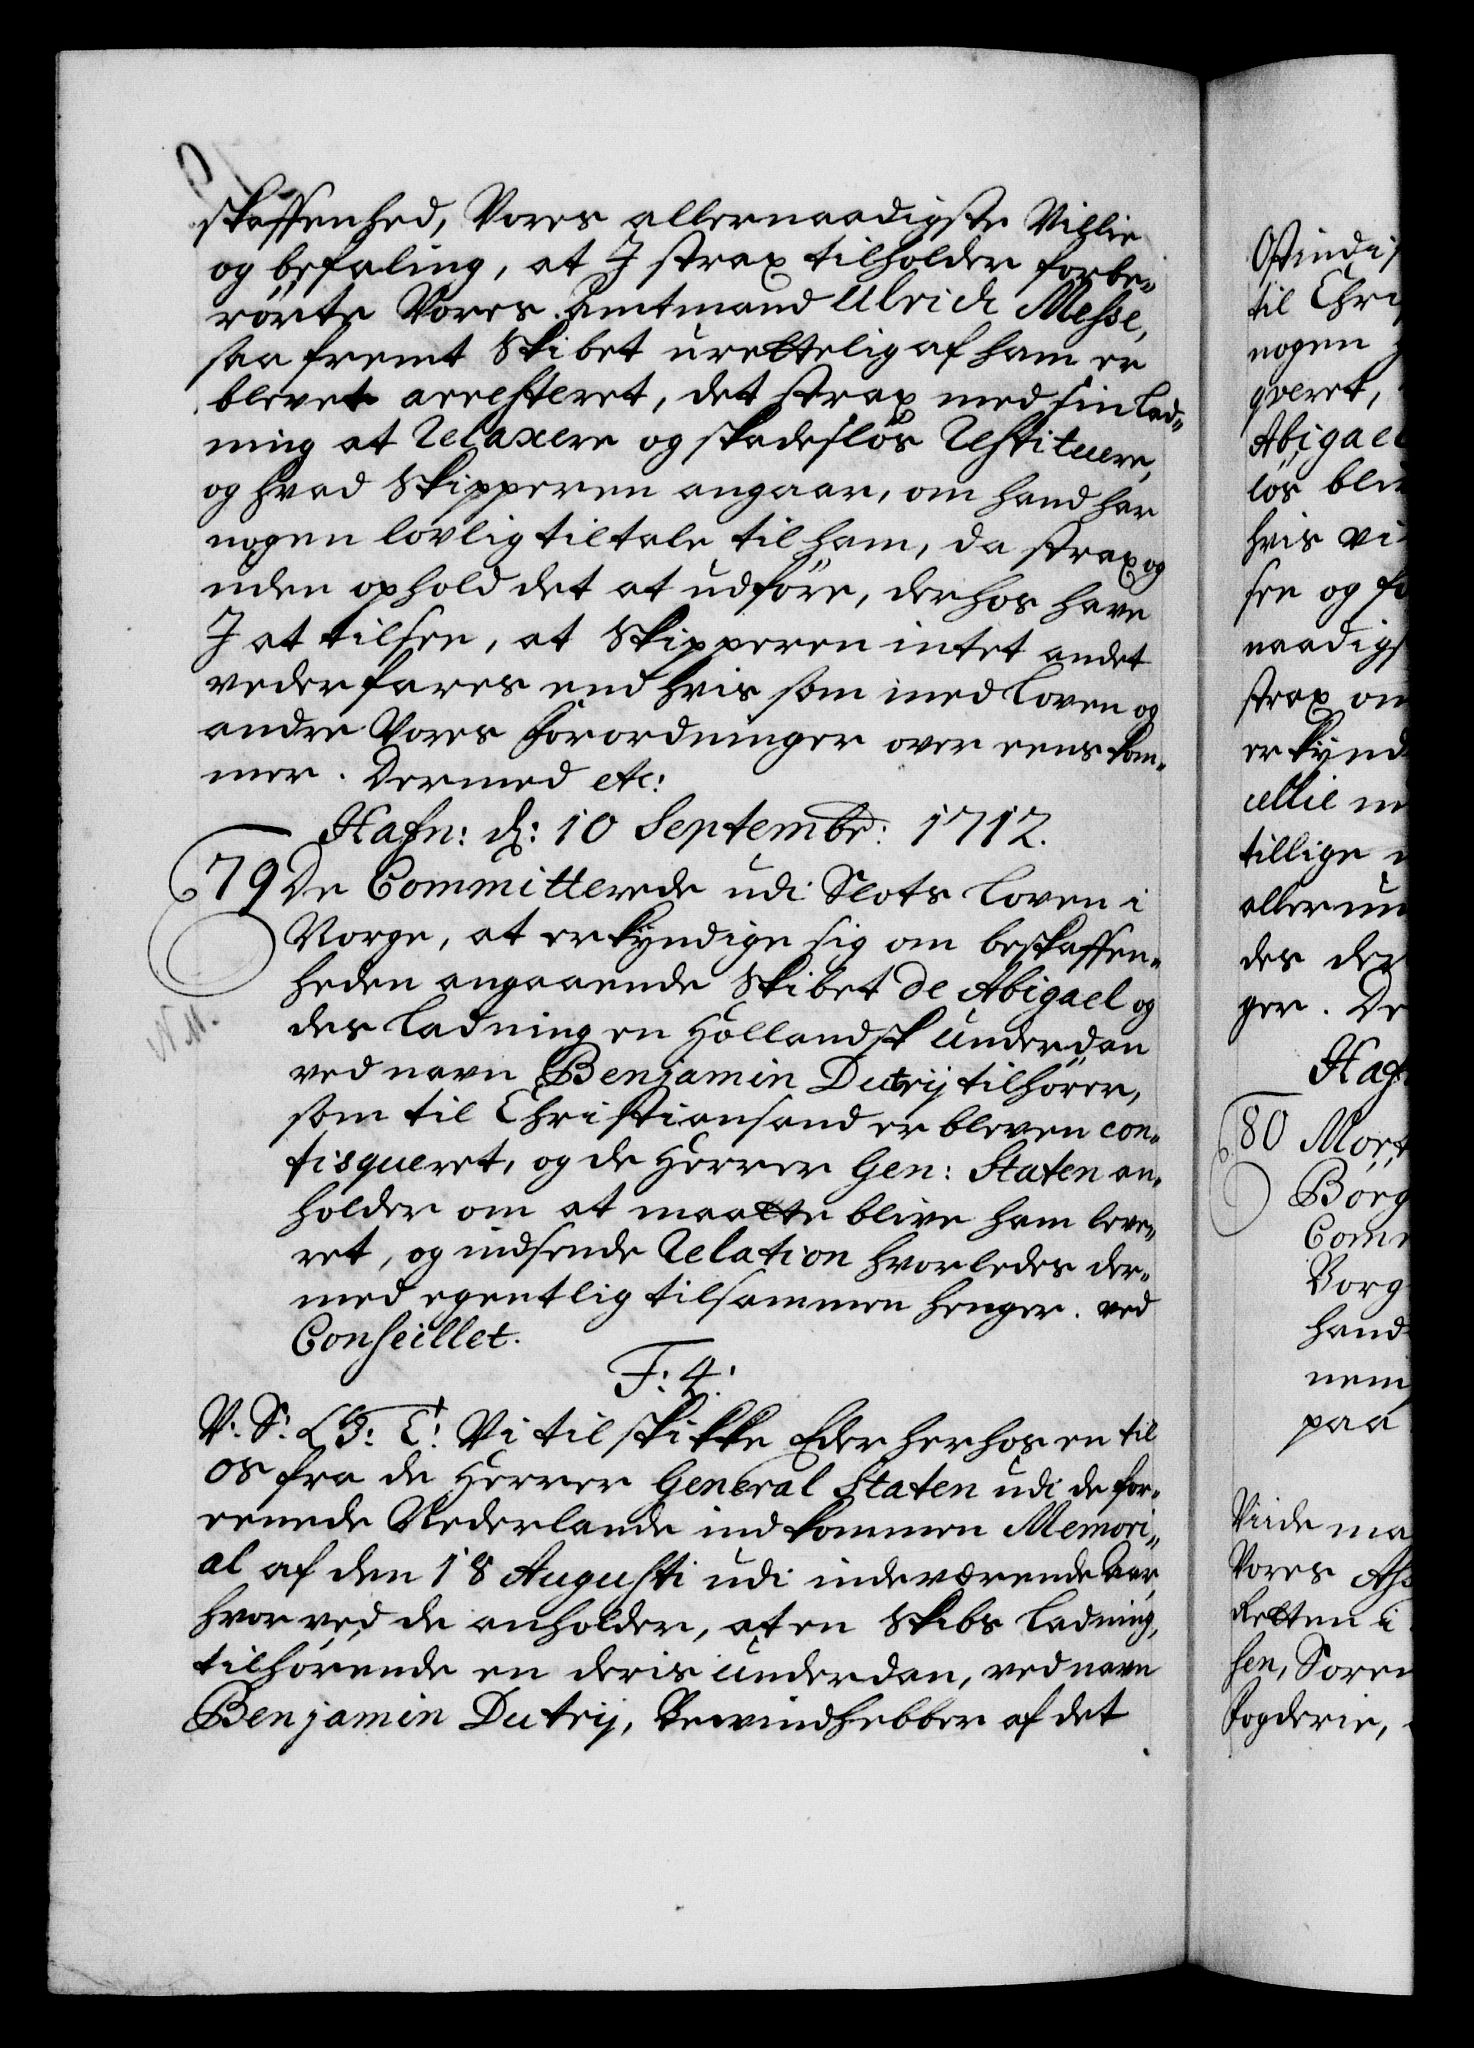 skaffenhed, Vores allernaadigste Villie
og befaling, at I strax tilholder forbe„
rørte Vores Amtmand Ulrich Messe,
saa fremt Skibet urettelig af ham er
blevet arresteret, det strax med sin lad„
ning at Relaxere og skadesløs Restituere,
og hvad Skipperen angaar, om hand har
nogen lovlig tiltale til ham, da strax og
uden ophold det at udføre, derhos have
I at tilsee, at Skipperen intet andet
vederfares end hvis som med Loven og
andre Vores Forordninger over eens kom„
mer. Dermed etc:
Hafn: d: 10 Septembr: 1712.
79 De Committerede udi Slots Loven i
Norge, at erkyndige sig om beskaffen„
heden angaaende Skibet de Abigael og
des Ladning en Hollandsk Underdan
ved navn Benjamin Dutrij tilhører,
som til Christiansand er bleven con„
fisqueret, og de Herrer Gen: Staten an„
holder om at maatte blive ham leve„
ret, og indsende Relation hvorledes der„
med egentlig tilsammen henger. ved
Conseillet.
F: 4:
V: S: G: T: Vi tilskikke Eder herhos en til
os fra de Herrer General Staten udi de for„
eenede Nederlande indkommen Memori„
al af den 18 Augusti udi indeværende Aar,
hvorved de anholder, at en Skibs Ladning,
tilhørende en deris Underdan, ved navn
Benjamin Dutrij, Bewindhebber af det
N M.
Ostindis
til Chri
nogen
qveret,
Abigael
løs bli
hvis vi
see og fo
naadigs
strax om
erkynd
cellie m
tillige
allerun
des der
ger. De
Haf
80 Mort
Børg
Com
Borg
hand
nem
paa
Vide ma
Vores Ass
Retten i
sen, Søren
Fogderie,